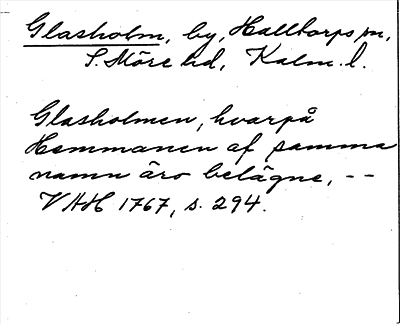 Glasholm, by, Halltorps sn,
S. Möre hd, Kalm. l.
Glasholmen, hvarpå
Hemmanen af samma
namn äro belägne, --
VAH 1767, s. 294.